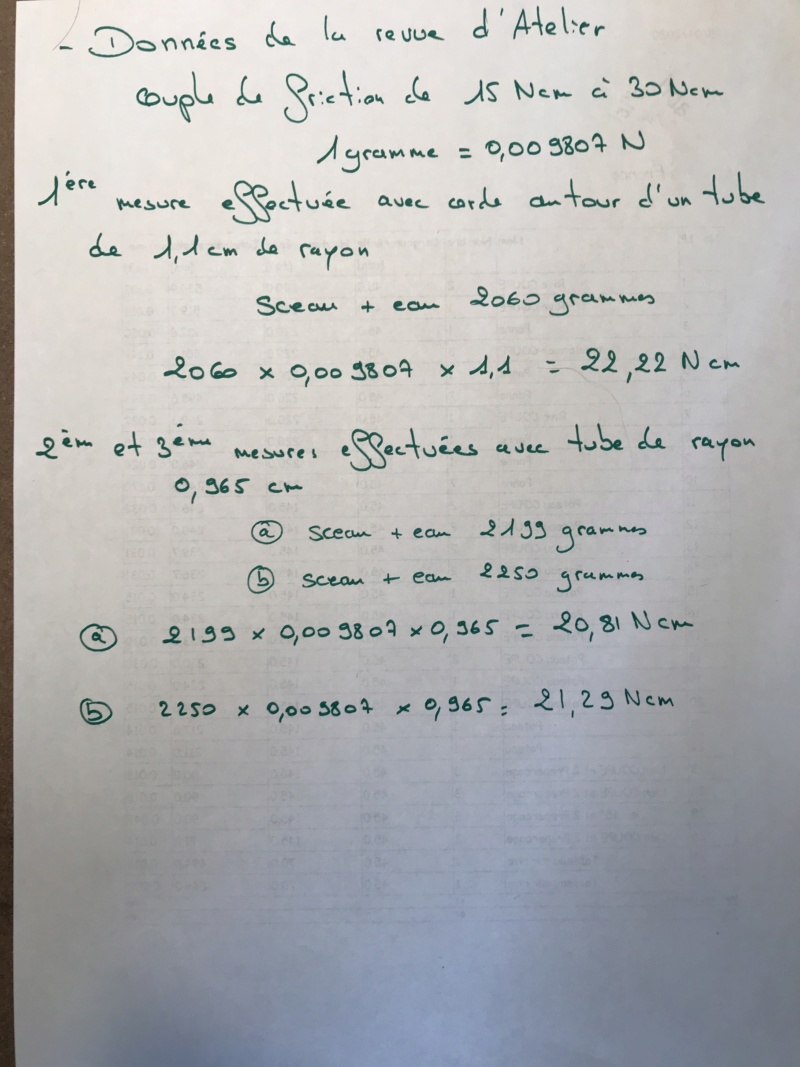 - Données de la revue d'Atelier
couple de friction de 15 Ncm à 30 Ncm
1 gramme = 0,009807 N
1ère mesure effectuée avec corde autour d'un tube
de 1,1 cm de rayon
Sceau + eau 2060 grammes
2060 x 0,009807 x 1,1 = 22,22 N cm
2èm et 3ème mesures effectuées avec tube de rayon
0,965 cm
(a) sceau + eau 2199 grammes
(b) sceau + eau 2250 grammes
(a) 2199 x 0,009807 x 0,965 = 20,81 N cm
(b) 2250 x 0,009807 x 0,965 = 21,29 N cm